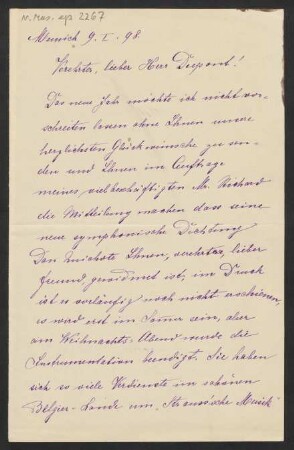 Munich 9. I. 98.
Verehrter, lieber Herr Dupont!
Das neue Jahr möchte ich nicht vor-
schreiten lassen ohne Ihnen unsere
herzlichsten Glückwünsche zu sen-
den und Ihnen im Auftrage
meines vielbeschäftigten Mr. Richard
die Mitteilung machen dass seine
neue symphonische Dichtung
Don Quichote Ihnen, verehrter, lieber
Freund gewidmet ist; im Druck
ist es vorläufig noch nicht erschienen,
es wird erst im sein, aber
am Weihnachts-Abend wurde die
Instrumentation beendigt. Sie haben
sich so viele Verdienste im schönen
Belgier-Lande um Strauss'sche Musik